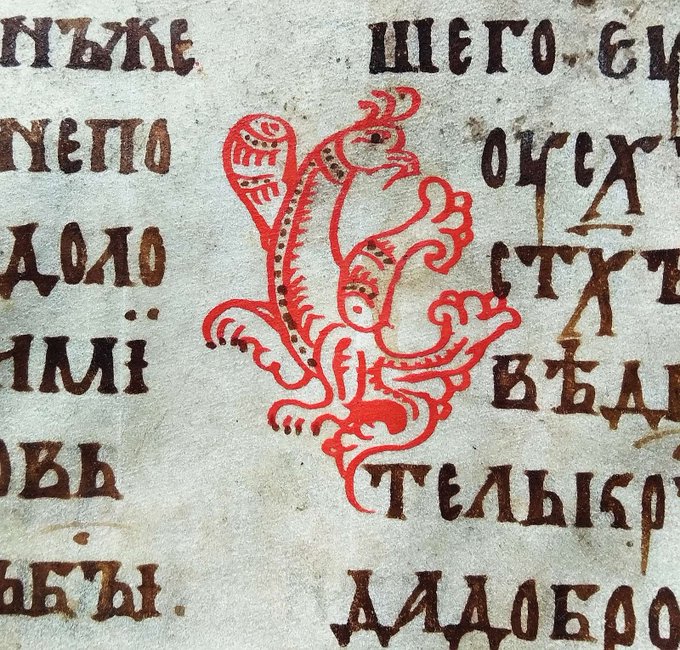 нъже
непо
доло
имї
овь
бъі.
шего
оцсх
стхъ
вѣд
телыкр
дадобро